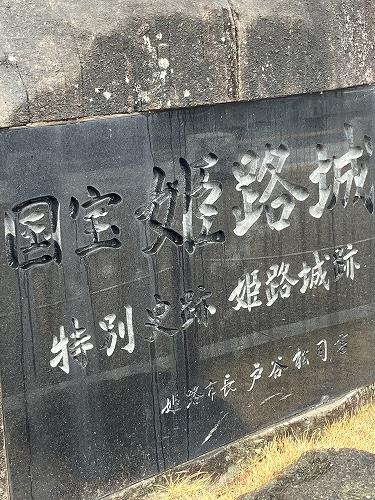 国宝 姫路城
特別史跡 姫路城跡
姫路市長 戸谷松司書